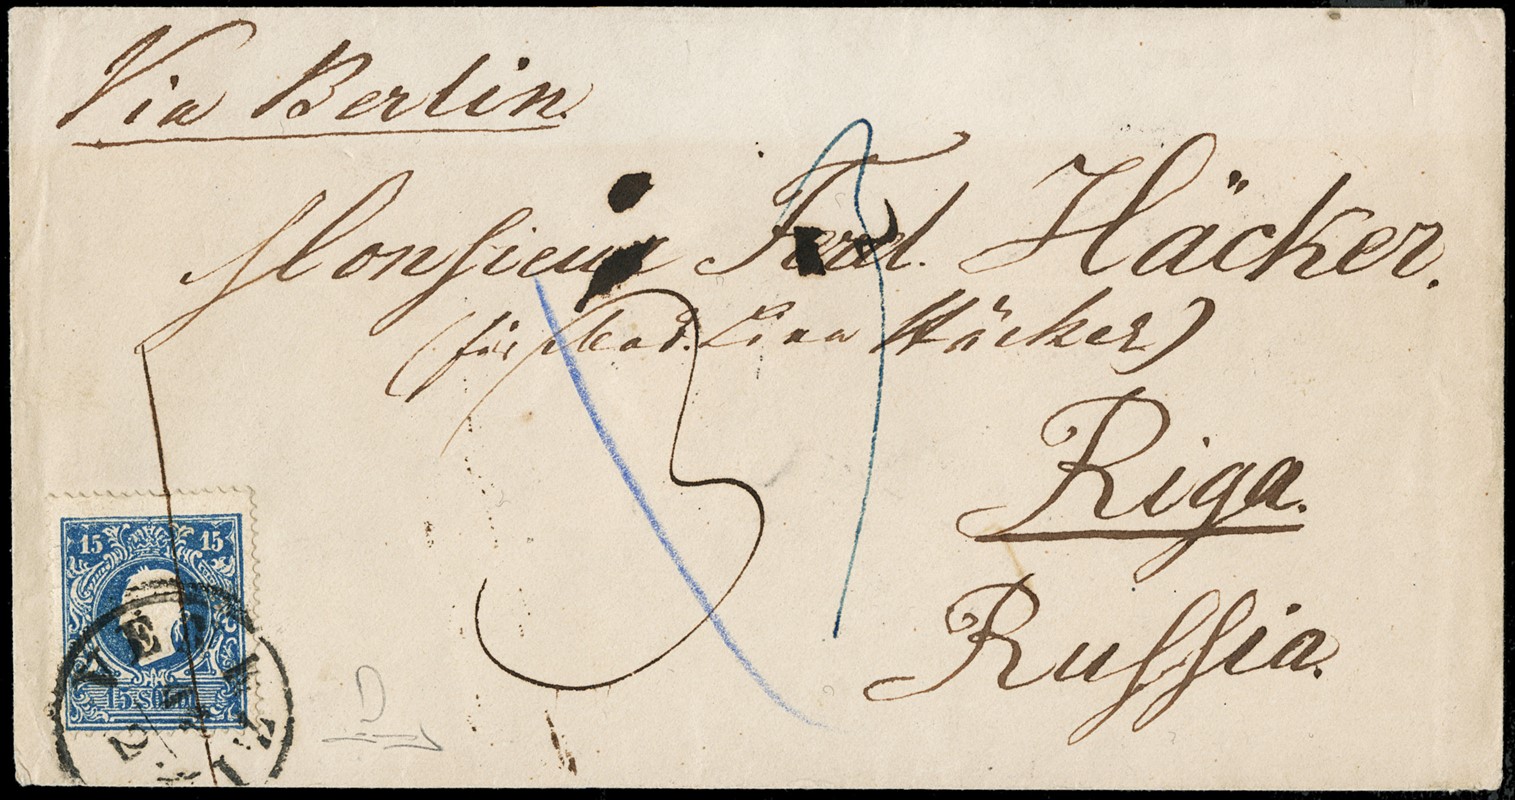 Via Berlin.
Monsieur Ferd. Häcker.
(für Mad. Lina Häcker)
Riga.
Russia.
3
15 15
15 SOLDI
VENEZIA
D